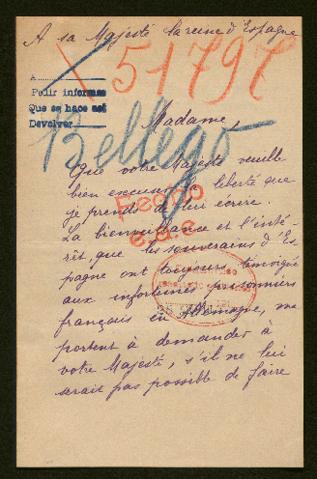 A sa Majesté la reine d'Espagne
X 51797
A
Pedir informes
Que se hace así
Devolver
Bellego
Madame,
Que votre Majesté veuille
bien excuser la liberté que
je prends de lui écrire.
La bienveillance et l'inté-
rêt, que les souverains d'Es-
pagne ont toujours témoigné
aux infortunés prisonniers
français en Allemagne, me
portent à demander à
votre Majesté, s'il ne lui
serait pas possible de faire